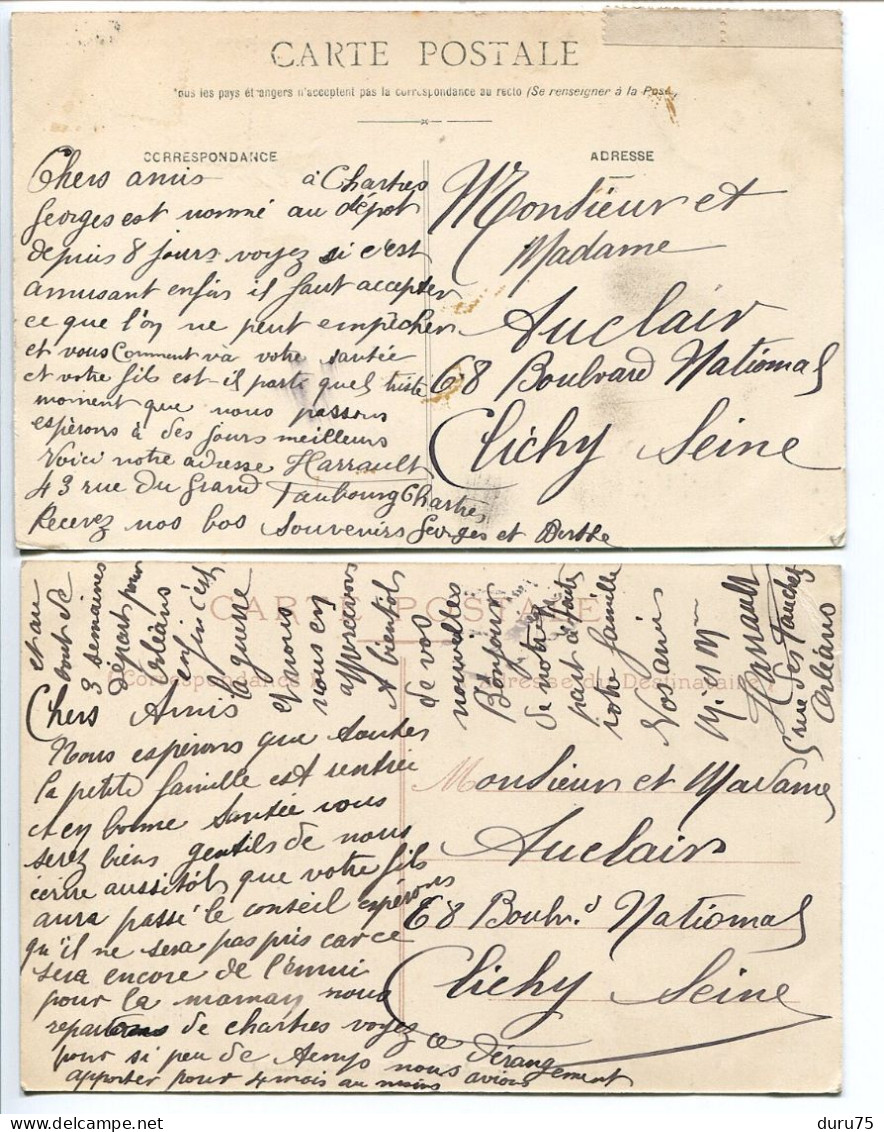 CARTE POSTALE
Tous les pays étrangers n'acceptent pas la correspondance au recto (Se renseigner à la Poste)
CORRESPONDANCE
Chers amis à Chartres
Georges est nommé au dépot
depuis 8 jours voyez si c'est
amusant enfin il faut accepter
ce que l'on ne peut empêcher
et vous Comment và votre santée
et votre fils est-il parti quel triste
moment que nous passons
espèrons à des jours meilleurs
Voici notre adresse Harrault
43 rue du Grand Faubourg Chartres
Recevez nos bos souvenirs Georges et Berthe
ADRESSE
Monsieur et
Madame
Auclair
68 Boulvard National
Clichy Seine
CARTE POSTALE
Correspondance
Adresse du Destinataire
Chers Amis
Nous espérons que toutes
la petite famille est rentrée
et en bonne santée vous
serez biens gentils de nous
écrire aussitôt que votre fils
aura passé le conseil espérons
qu'il ne sera pas pris car ce
sera encore de l'ennui
pour la maman nous
repartons de chartres voyez ce dérangement
pour si peu de temps nous avions
apporter pour 4 mois au moins
et au
bout de
3 semaines
départ pour
Orléans
enfin c'est
la guerre
et nous
vous en
A bientôt
de vos
nouvelles
Bonjour
de notre
part à toute
votre famille
Vos amis
M. et Mme
Harrault
5 rue des
Orléans
Monsieur et Madame
Auclair
68 Boulv.d National
Clichy Seine
duru75